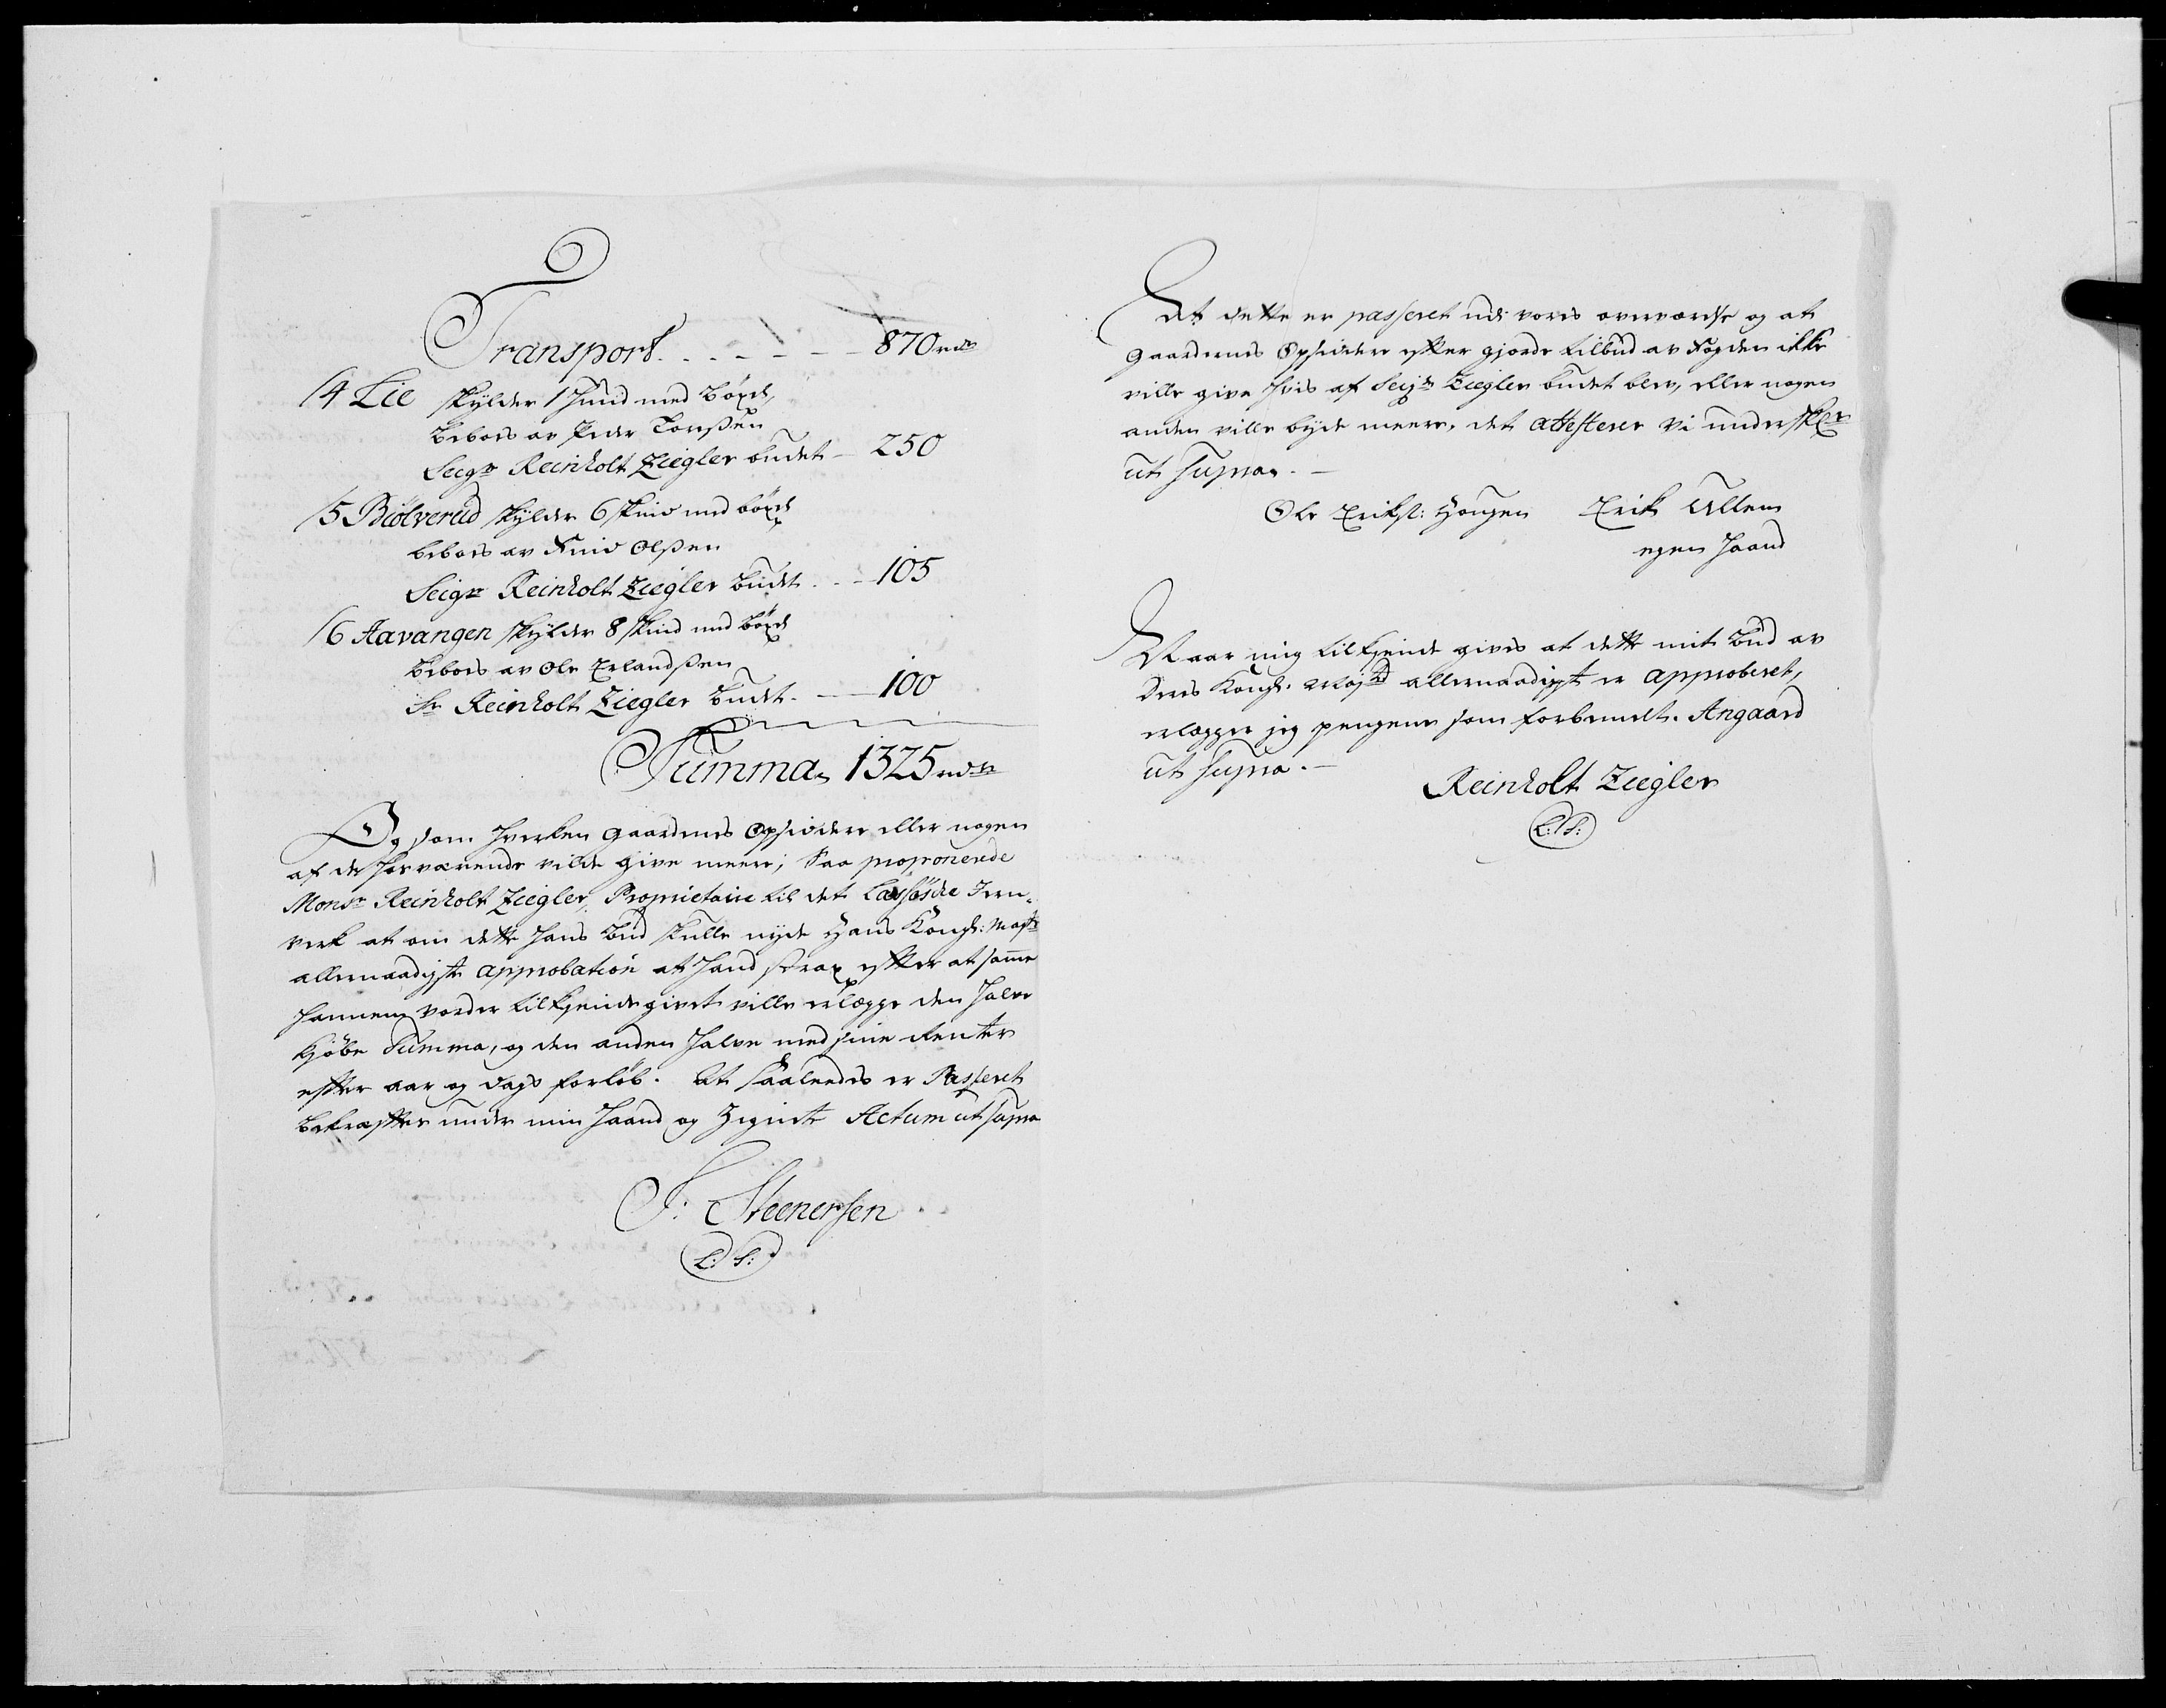 Transport. . . . . . 870 rdr
14 Lie skylder 1 Hund med Böxel,
beboes av Peder Torsßen
Seigr Reinholt Ziegler budet - 250
15 Biölverud skylder 6 skind med böxel
beboes av Knud Olßen
Seigr Reinholt Ziegler budet . . - 105
16 Aavangen skylder 8 skind med böxel
beboes av Ole Erlandßen
Sr Reinholt Ziegler budet. - 100
Summa, 1325 rdr
Og som hverken gaardenes Opsiddere eller nogen
af de hosværende vilde give meere; Saa proponerede
Monsr Reinholt Ziegler, Proprietaire til det Læsösche Jern-
verk at om dette hans bud skulle nyde Hans Kongl: Majts
allernaadigste approbation at hand strax efter at samme
hannem vorder tilkjende givet ville erlægge den halve
Kjöbe Summa, og den anden halve med sine Renter
efter aar og dags forlöb. At saaledes er Passeret
bekræfter under min haand og Zignete Actum ut supra
S: Steenersen
(L: S:)
At dette er passeret udi voris overværelse og at
gaardenes Opsiddere efter gjorde tilbud av Fogden ikke
ville give hvis af Seigr Ziegler budet blev, eller nogen
anden ville byde meere, det attesterer vi underskr
ut supra. -
Ole Eriks: Hougen Erik Ullern
egen haand
Naar mig tilkjende gives at dette mit bud av
Deris Kongl. Majtd allernaadigst er approberet,
erlægger jeg pengene som forbemelt. Angaard
ut supra. -
Reinholt Ziegler
(L: S:)